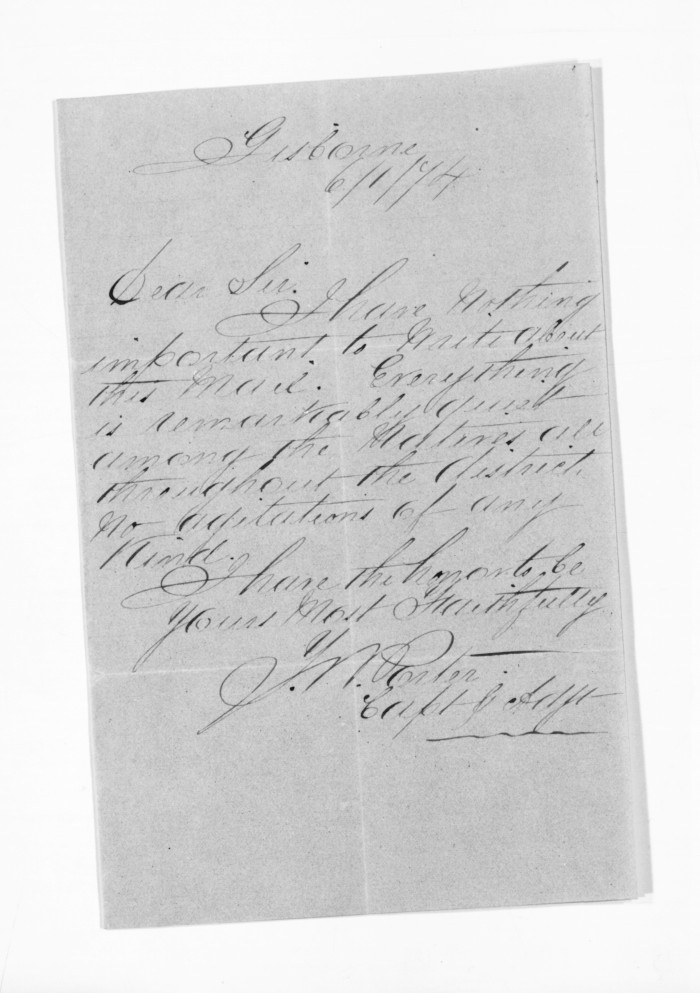 Gisborne
6/1/74
Dear Sir.
I have Nothing
important to Write about
this Mail. Everything
is remarkably quiet
among the Natives all
throughout the district.
No agitations of any
Kind.
I have the honor to be
Yours Most Faithfully
T. W. Porter.
Capt & Adjt